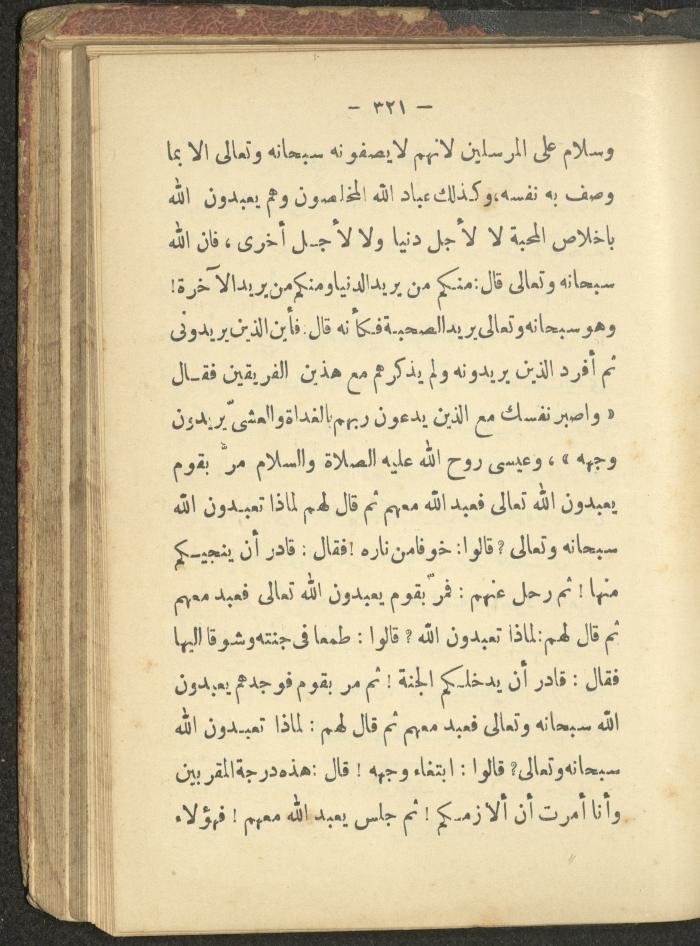 — ٣٢١ —
وسلام على المرسلين لانهم لا يصفونه سبحانه وتعالى الا بما
وصف به نفسه، وكذلك عباد الله المخلصون وهم يعبدون الله
باخلاص المحبة لا لأجل دنيا ولا لأجل أخرى ، فان الله
سبحانه وتعالى قال : منكم من يريد الدنيا ومنكم من يريد الآخرة !
وهو سبحانه وتعالى يريد الصحبة فكأنه قال . فأين الذين يريدونى
ثم أفرد الذين يريدونه ولم يذكرهم مع هذين الفريقين فقال
« واصبر نفسك مع الذين يدعون ربهم بالغداة والعشىّ يريدون
وجهه » ، وعيسى روح الله عليه الصلاة والسلام مرّ بقوم
يعبدون الله تعالى فعبد الله معهم ثم قال لهم لماذا تعبدون الله
سبحانه وتعالى ? قالوا : خوفا من ناره ! فقال : قادر أن ينجيكم
منها ! ثم رحل عنهم : فمرّ بقوم يعبدون الله تعالى فعبد معهم
ثم قال لهم : لماذا تعبدون الله ? قالوا : طمعا فى جنته وشوقا اليها
فقال : قادر أن يدخلكم الجنة ! ثم مر بقوم فوجدهم يعبدون
الله سبحانه وتعالى فعبد معهم ثم قال لهم : لماذا تعبدون الله
سبحانه وتعالى ? قالوا : ابتغاء وجهه ! قال : هذه درجة المقربين
وأنا أمرت أن ألازمكم ! ثم جلس يعبد الله معهم ! فهؤلاء